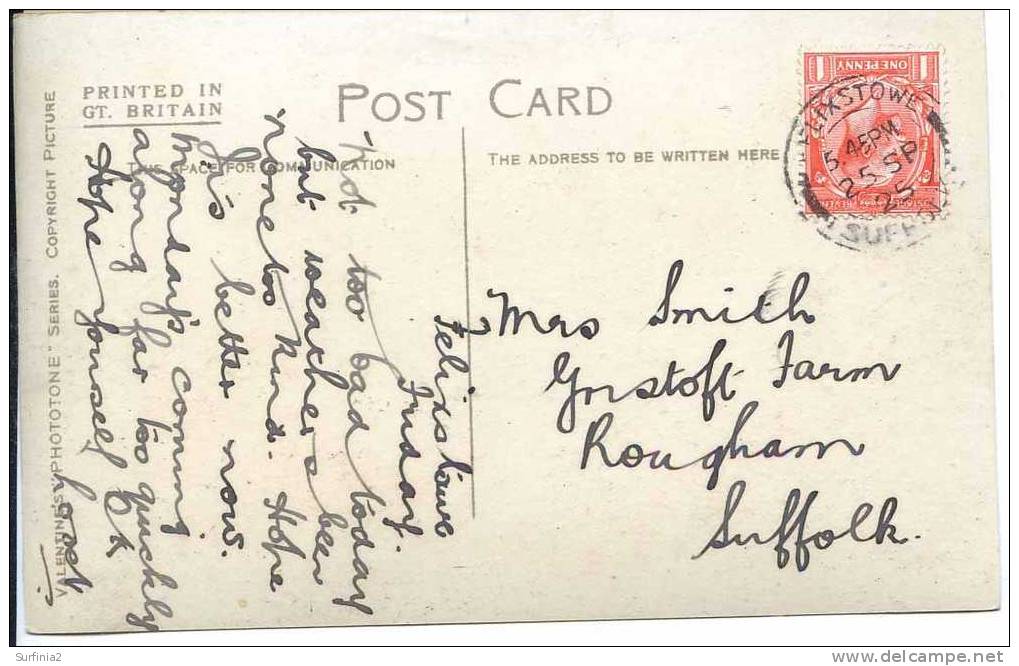 POST CARD
PRINTED IN
GT. BRITAIN
THIS SPACE FOR COMMUNICATION
THE ADDRESS TO BE WRITTEN HERE
VALENTINE'S "PHOTOTONE" SERIES. COPYRIGHT PICTURE
ONE PENNY
1 1
FELIXSTOWE
5.45PM
25 SP
25
SUFFOLK
Mrs Smith
Farm
Rougham
Suffolk.
Felixstowe
Friday.
Not too bad today
but weather's been
none too kind. Hope
it's better now.
Monday's coming
along far too quickly
Hope yourself
Surfinia2
delcampe.net